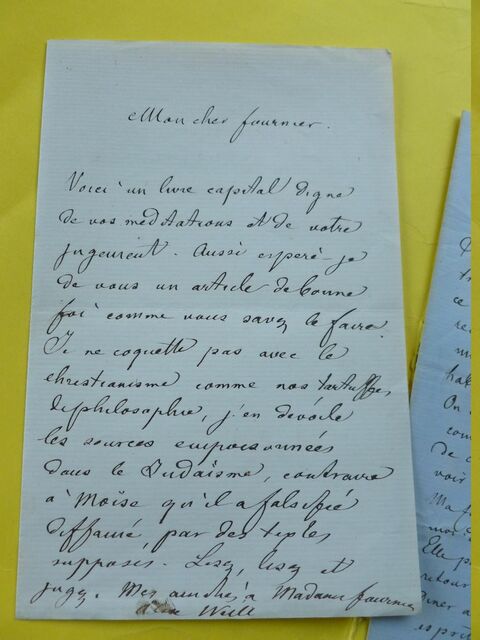 Mon cher fournier.
Voici un livre capital digne
de vos méditations et de votre
jugement. Aussi esperè-je
de vous un article de bonne
foi comme vous savez le faire.
Je ne coquette pas avec le
christianisme comme nos tartuffes
de philosophie, j'en dévoile
les sources empoisonnées
dans le Judaïsme, contraire
à Moïse qu'il a falsifié
diffamé, par des textes
supposés. Lisez, lisez et
jugez. Mes à Madame fournier
Weill
tr
ce
On
com
de
voir
Ma
moi
Elle
retour
Diner